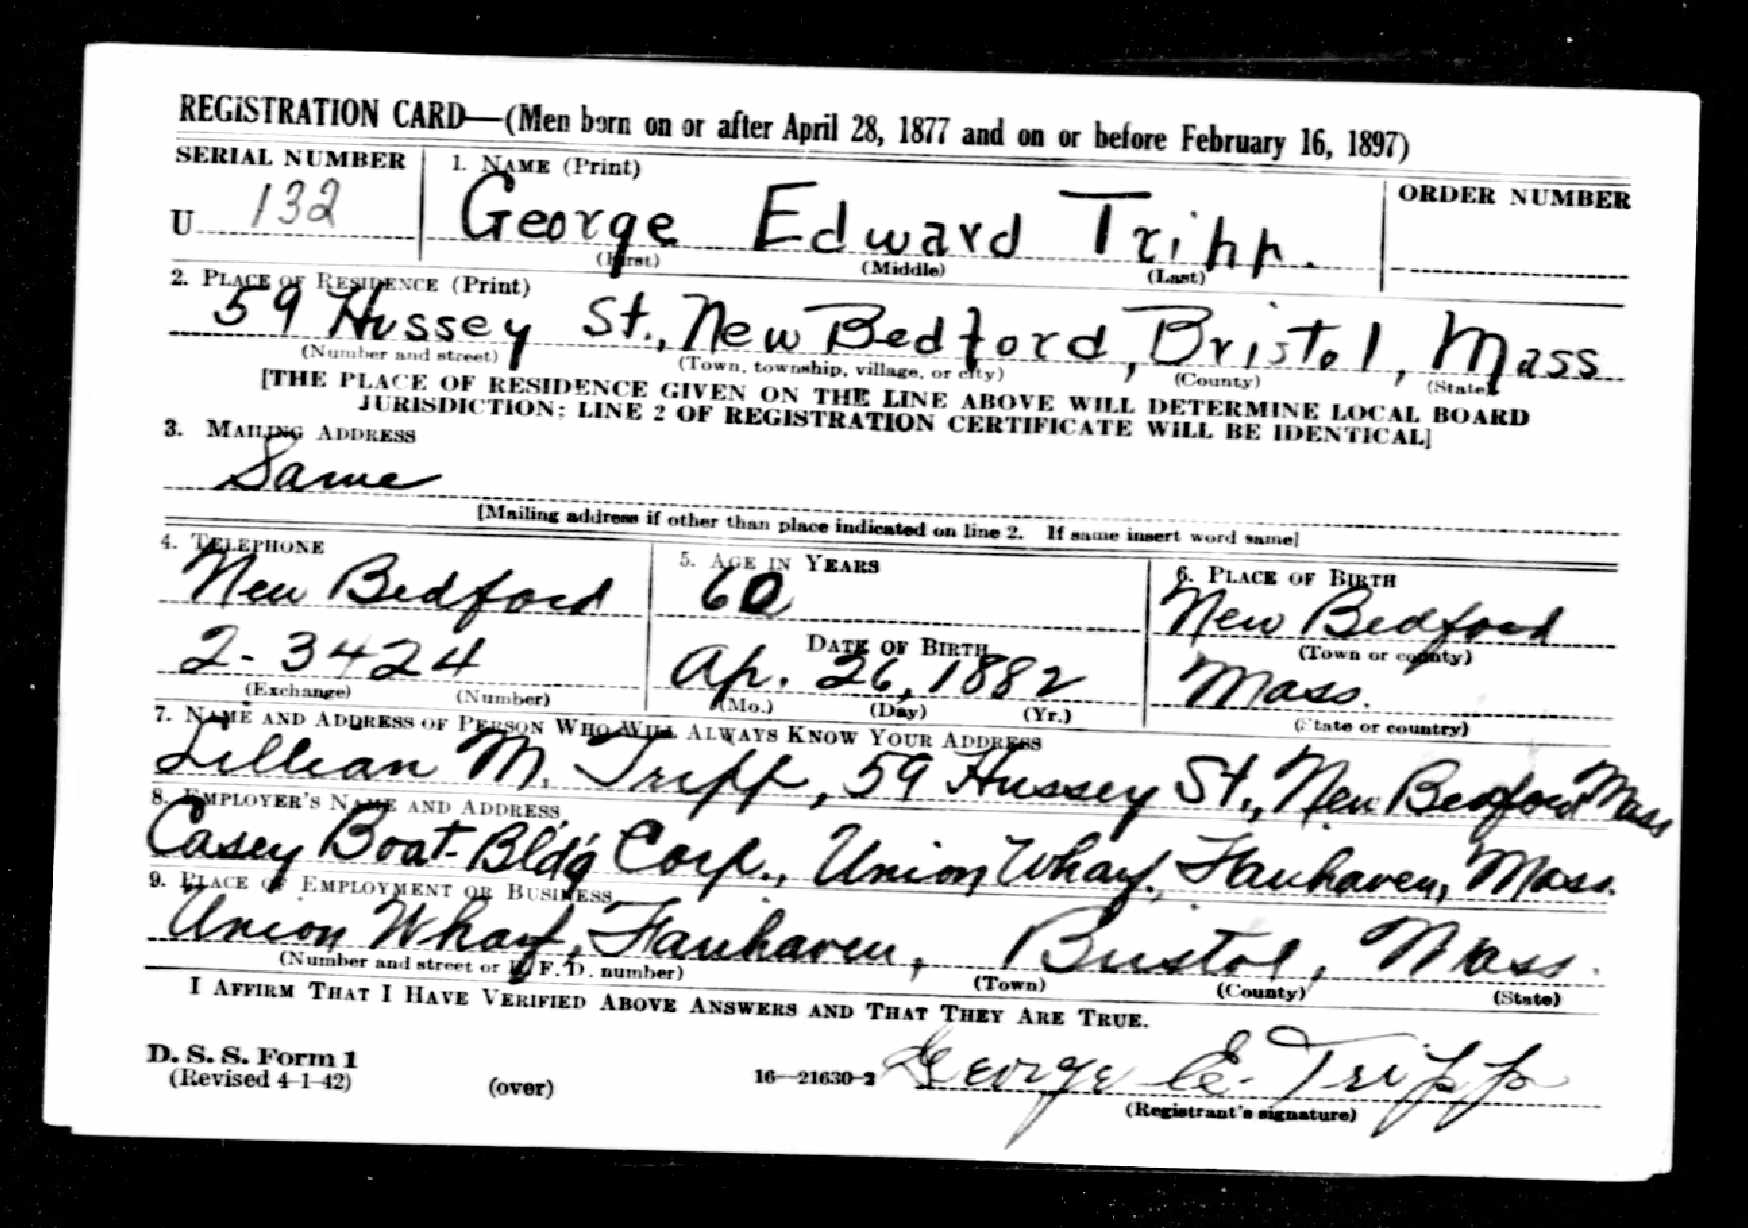 REGISTRATION CARD—(Men born on or after April 28, 1877 and on or before February 16, 1897)
SERIAL NUMBER 1. NAME (Print) ORDER NUMBER
U 132 George Edward Tripp.
(First) (Middle) (Last)
2. PLACE OF RESIDENCE (Print)
59 Hussey St., New Bedford, Bristol, Mass
(Number and street) (Town, township, village, or city) (County) (State)
[THE PLACE OF RESIDENCE GIVEN ON THE LINE ABOVE WILL DETERMINE LOCAL BOARD
JURISDICTION; LINE 2 OF REGISTRATION CERTIFICATE WILL BE IDENTICAL]
3. MAILING ADDRESS
Same
[Mailing address if other than place indicated on line 2. If same insert word same]
4. TELEPHONE 5. AGE IN YEARS 6. PLACE OF BIRTH
New Bedford 60 New Bedford
DATE OF BIRTH (Town or county)
2-3424 Ap. 26, 1882 Mass.
(Exchange) (Number) (Mo.) (Day) (Yr.) (State or country)
7. NAME AND ADDRESS OF PERSON WHO WILL ALWAYS KNOW YOUR ADDRESS
Lillian M. Tripp, 59 Hussey St., New Bedford Mass
8. EMPLOYER'S NAME AND ADDRESS
Casey Boat Bld'g Corp., Union Wharf, Fairhaven, Mass.
9. PLACE OF EMPLOYMENT OR BUSINESS
Union Wharf, Fairhaven, Bristol, Mass.
(Number and street or R. F. D. number) (Town) (County) (State)
I AFFIRM THAT I HAVE VERIFIED ABOVE ANSWERS AND THAT THEY ARE TRUE.
D. S. S. Form 1
(Revised 4-1-42) (over) 16—21630-2 George E. Tripp
(Registrant's signature)